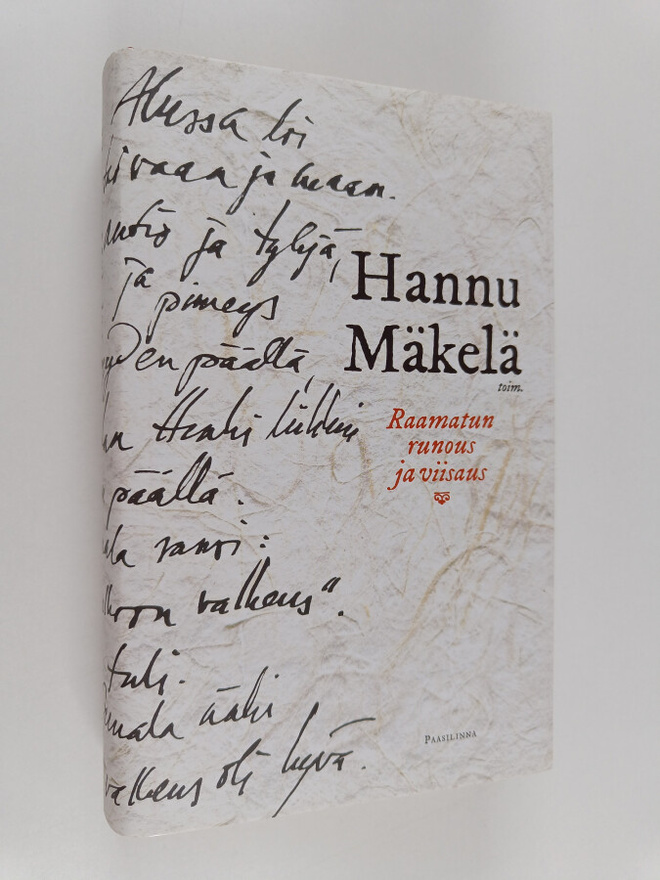 Alussa loi
taivaan ja maan.
autio ja tyhjä,
ja pimeys
syvyyden päällä,
Henki liikkui
päällä.
sanoi:
valkeus".
tuli.
näki
valkeus oli hyvä.
Hannu
Mäkelä
toim.
Raamatun
runous
ja viisaus
PAASILINNA